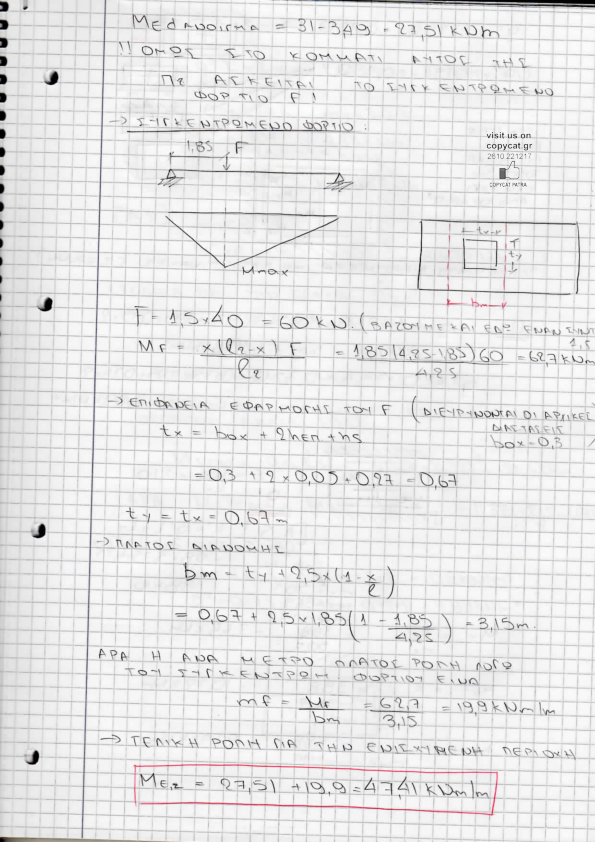 MEdΑΝΟΙΓΜΑ = 31-3,49 = 27,51 kNm
!! ΟΜΩΣ ΣΤΟ ΚΟΜΜΑΤΙ ΑΥΤΟΣ ΤΗΣ
Π2 ΑΣΚΕΙΤΑΙ ΤΟ ΣΥΓΚΕΝΤΡΩΜΕΝΟ
ΦΟΡΤΙΟ F!
→ ΣΥΓΚΕΝΤΡΩΜΕΝΟ ΦΟΡΤΙΟ:
visit us on
copycat.gr
2610 221217
COPYCAT PATRA
1,85 F
Mmax
tx
ty
bm
F = 1,5×40 = 60 kN. (ΒΑΖΟΥΜΕ ΚΑΙ ΕΔΩ ΕΝΑΝ ΣΥΝΤ
1,5
MF = x(l2-x) F / l2 = 1,85(4,25-1,85)60 / 4,25 = 62,7 kNm
→ ΕΠΙΦΑΝΕΙΑ ΕΦΑΡΜΟΓΗΣ ΤΟΥ F (ΔΙΕΥΡΥΝΟΝΤΑΙ ΟΙ ΑΡΧΙΚΕΣ
ΔΙΑΣΤΑΣΕΙΣ
tx = box + 2hεπ + hs box = 0,3
= 0,3 + 2×0,05 + 0,27 = 0,67
ty = tx = 0,67 m
→ ΠΛΑΤΟΣ ΔΙΑΝΟΜΗΣ
bm = ty + 2,5×(1 - x/l)
= 0,67 + 2,5×1,85(1 - 1,85/4,25) = 3,15 m.
ΑΡΑ Η ΑΝΑ ΜΕΤΡΟ ΠΛΑΤΟΣ ΡΟΠΗ ΛΟΓΩ
ΤΟΥ ΣΥΓΚΕΝΤΡΩΜ ΦΟΡΤΙΟΥ ΕΙΝΑ
mf = MF/bm = 62,7/3,15 = 19,9 kNm/m
→ ΤΕΛΙΚΗ ΡΟΠΗ ΓΙΑ ΤΗΝ ΕΝΙΣΧΥΜΕΝΗ ΠΕΡΙΟΧΗ
ME,2 = 27,51 + 19,9 = 47,41 kNm/m